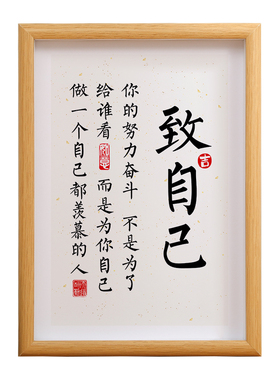 致自己
吉
你的努力奋斗 不是为了
给谁看 而是为你自己
做一个自己都羡慕的人